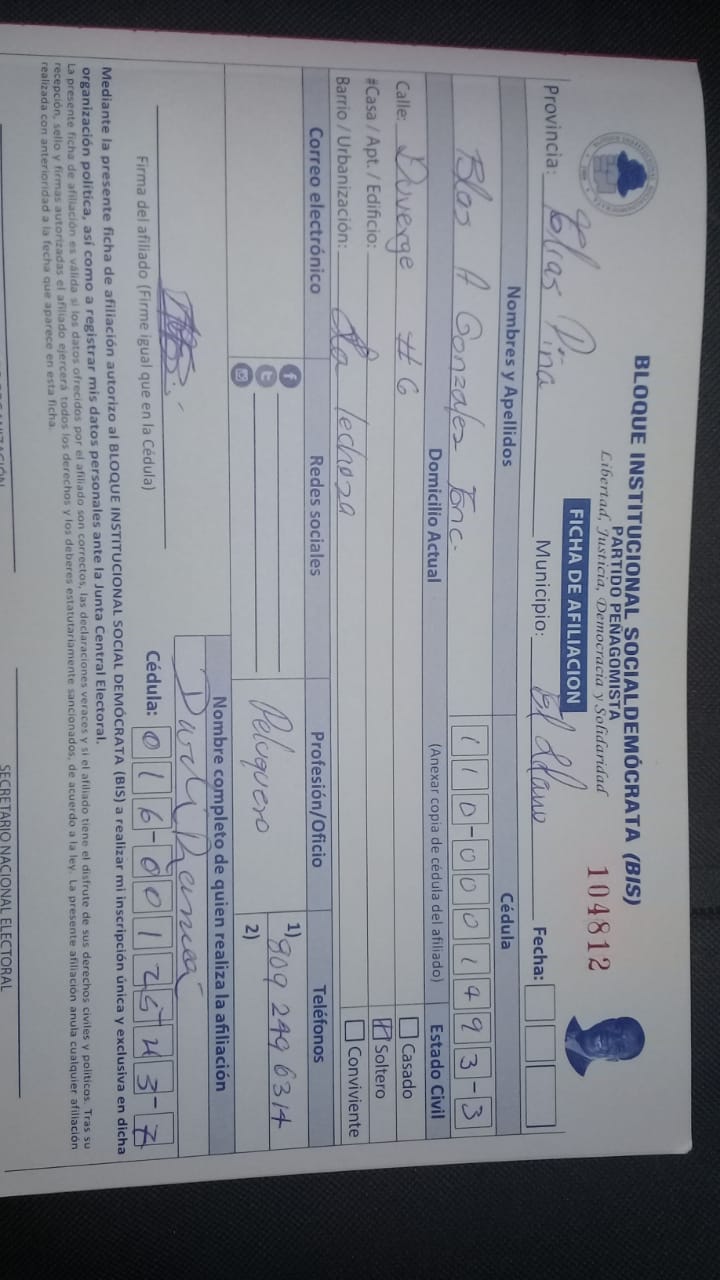 BLOQUE INSTITUCIONAL SOCIALDEMÓCRATA (BIS)
PARTIDO PEÑAGOMISTA
Libertad, Justicia, Democracia y Solidaridad
FICHA DE AFILIACION
104812
Provincia: Elias Piña Municipio: El Llano Fecha:
Nombres y Apellidos Cédula
Blas A Gonzales Enc. 110-0001493-3
Domicilio Actual (Anexar copia de cédula del afiliado) Estado Civil
Calle: Duverge #6 Casado
#Casa / Apt. / Edificio: Soltero
Barrio / Urbanización: La lechoza Conviviente
Correo electrónico Redes sociales Profesión/Oficio Teléfonos
Peluquero 1) 809 249 6314
2)
Nombre completo de quien realiza la afiliación
Firma del afiliado (Firme igual que en la Cédula) Cédula: 016-0012543-7
Mediante la presente ficha de afiliación autorizo al BLOQUE INSTITUCIONAL SOCIAL DEMÓCRATA (BIS) a realizar mi inscripción única y exclusiva en dicha
organización política, así como a registrar mis datos personales ante la Junta Central Electoral.
La presente ficha de afiliación es válida si los datos ofrecidos por el afiliado son correctos, las declaraciones veraces y si el afiliado tiene el disfrute de sus derechos civiles y políticos. Tras su
recepción, sello y firmas autorizadas el afiliado ejercerá todos los derechos y los deberes estatutariamente sancionados, de acuerdo a la ley. La presente afiliación anula cualquier afiliación
realizada con anterioridad a la fecha que aparece en esta ficha.
SECRETARIO NACIONAL ELECTORAL